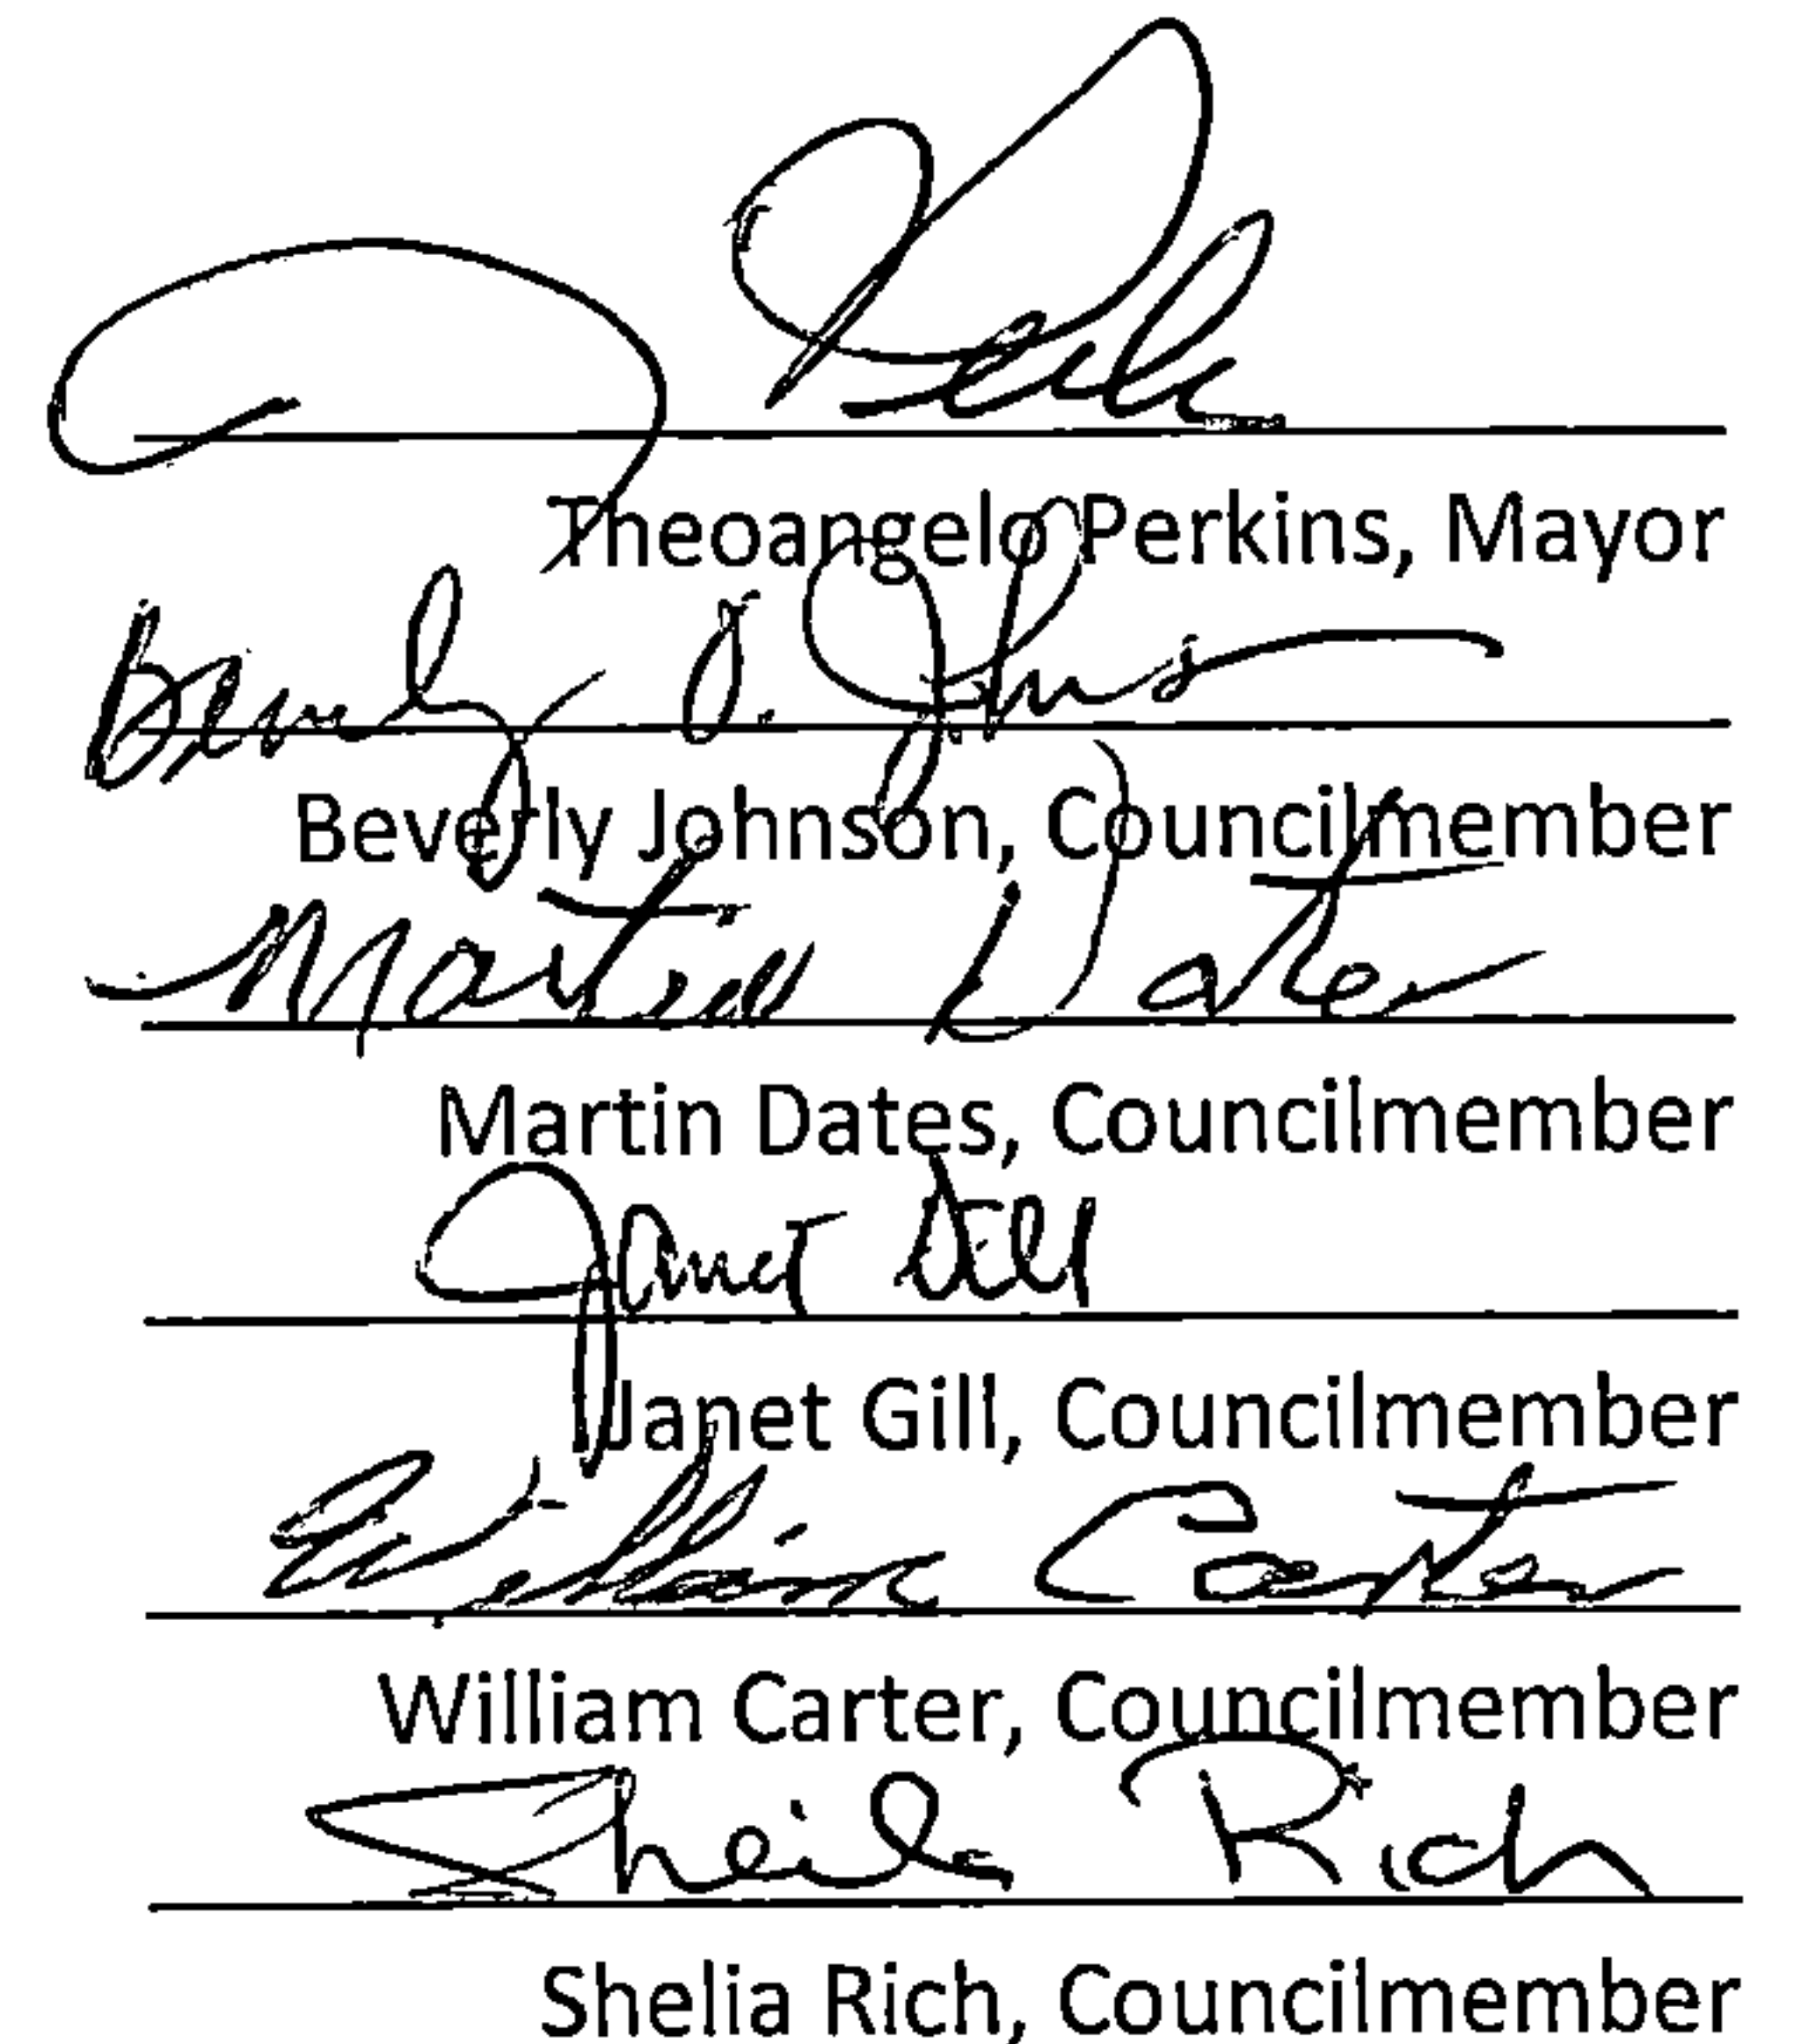 Theoangelo Perkins, Mayor
Beverly J. Johnson
Beverly Johnson, Councilmember
Martin Dates
Martin Dates, Councilmember
Janet Gill
Janet Gill, Councilmember
William Carter
William Carter, Councilmember
Sheila Rich
Shelia Rich, Councilmember